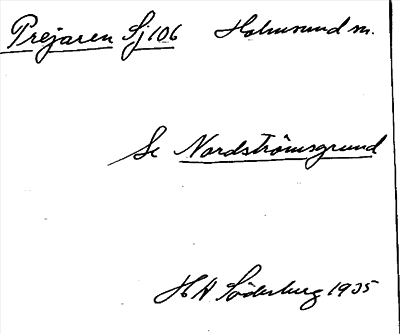 Prejaren Sj 106 Holmsund m.
Se Nordströmsgrund
HH Söderberg 1935